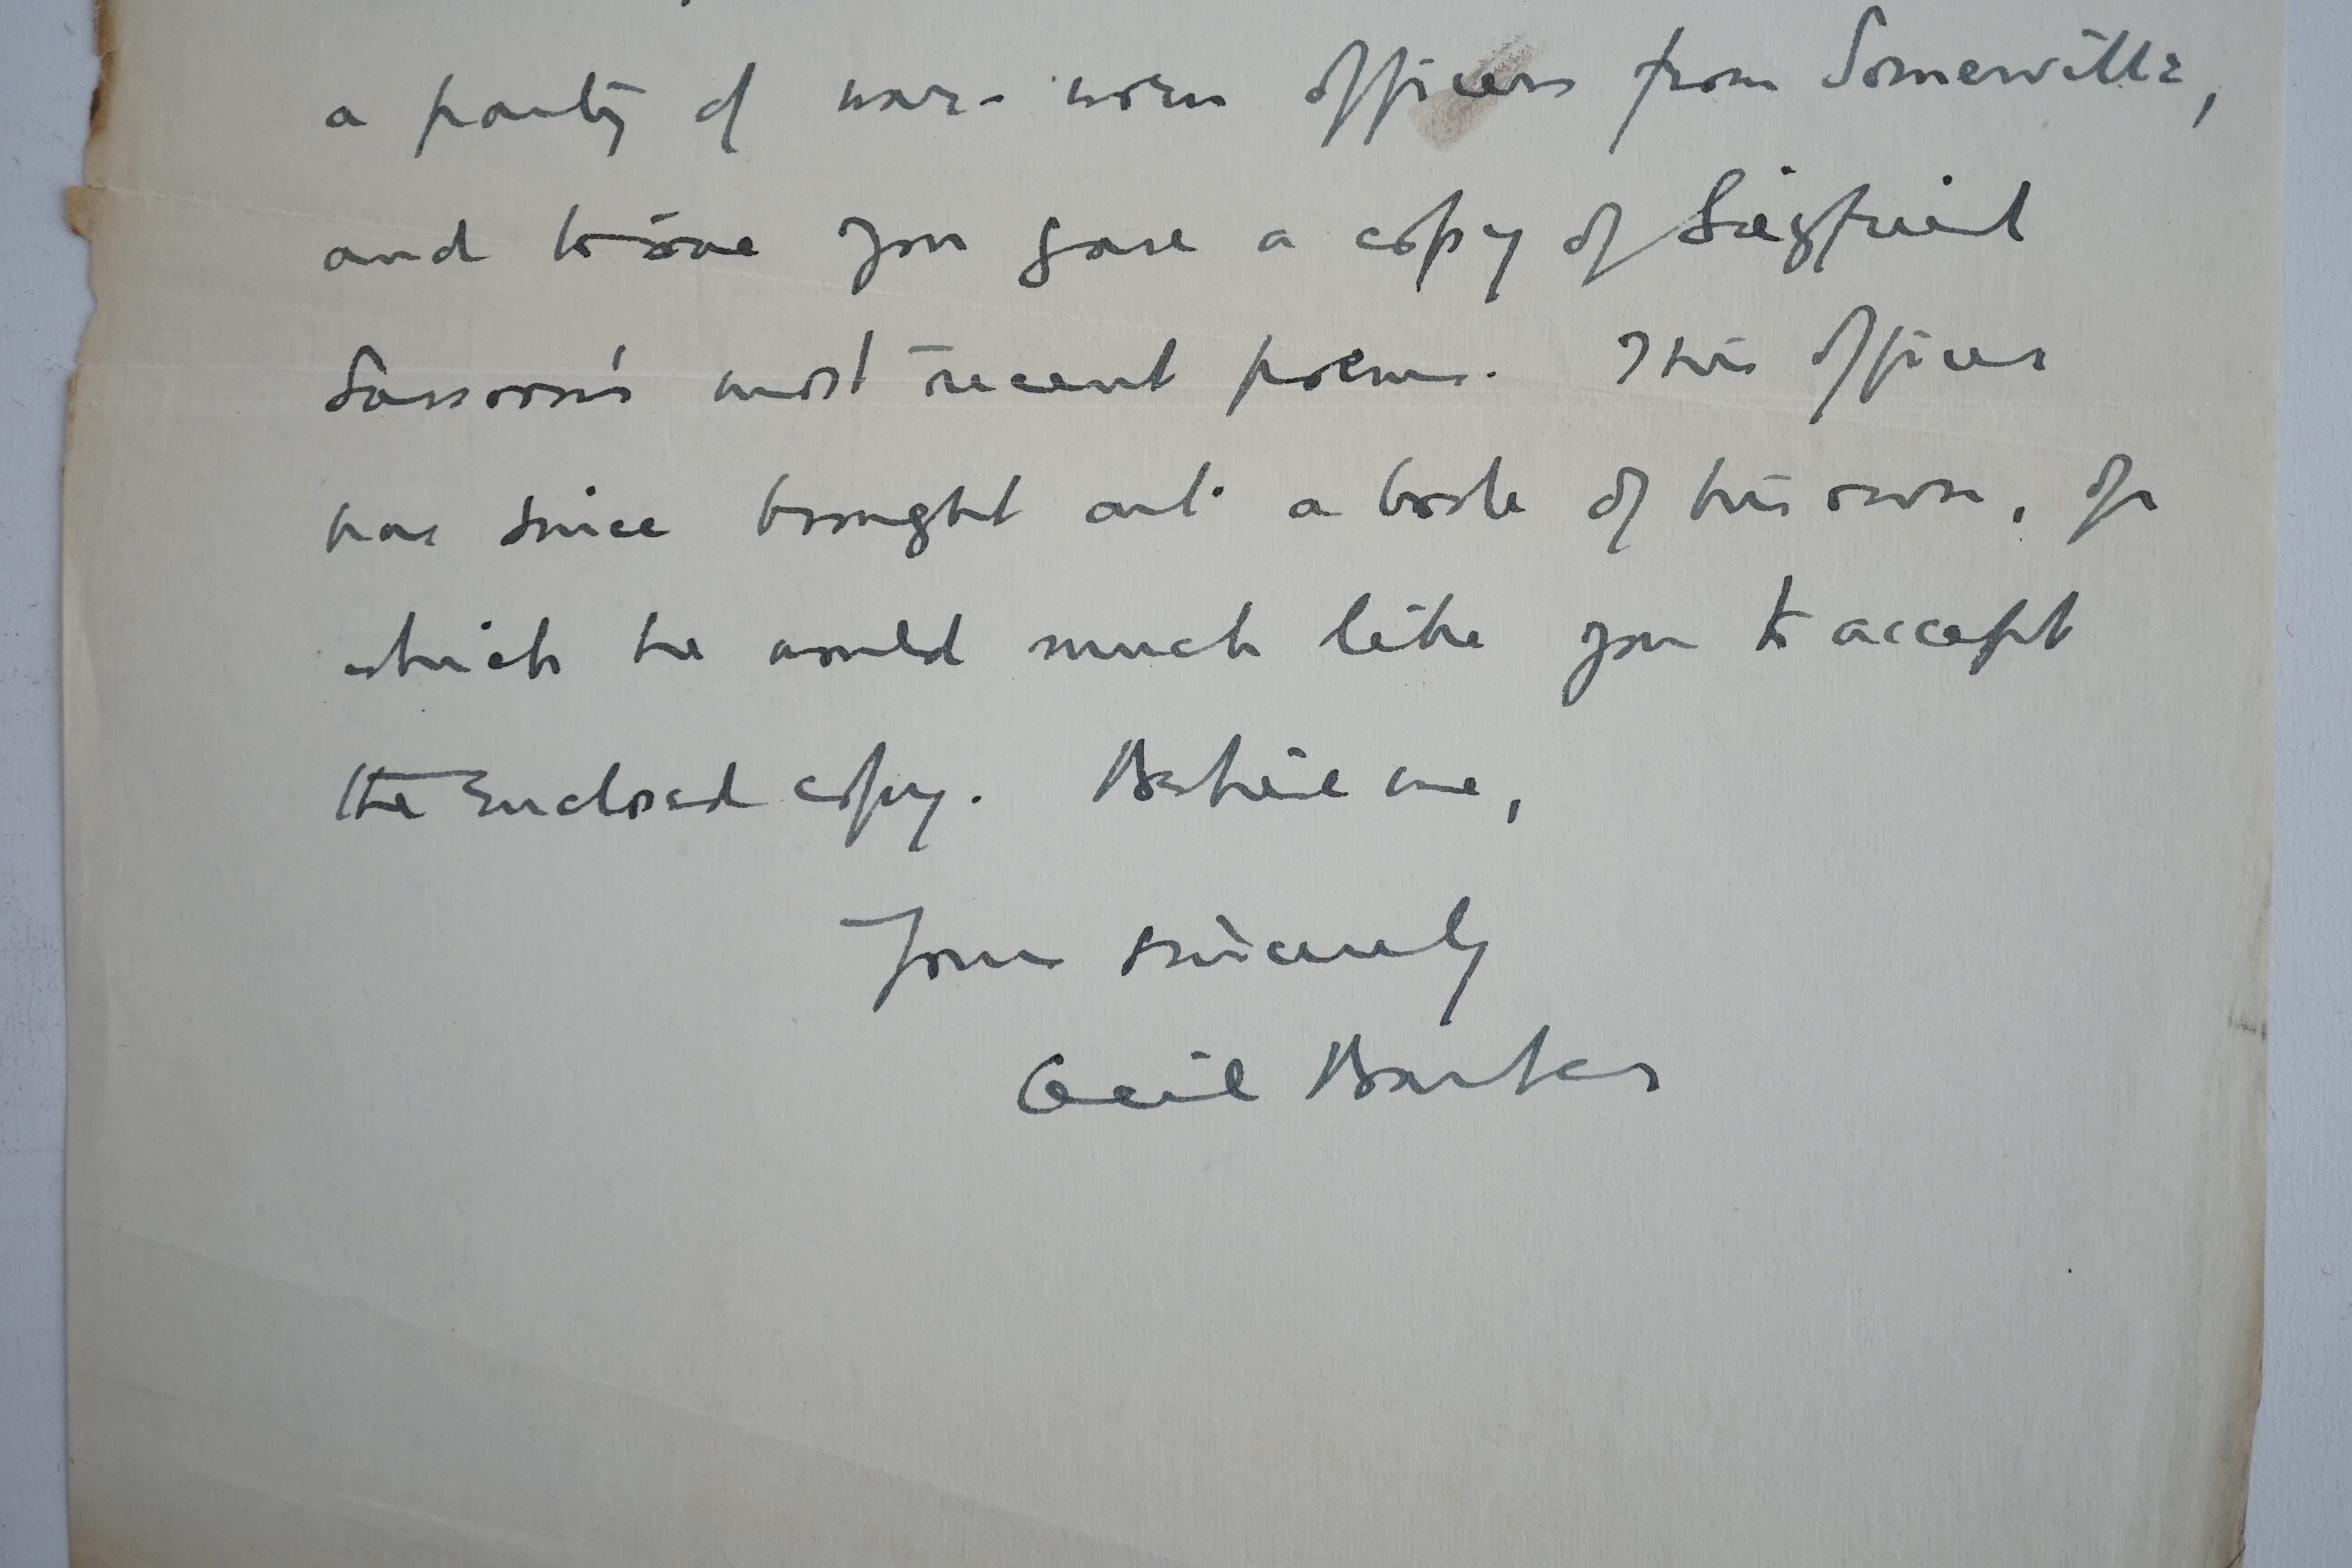 a party of war-worn officers from Somerville,
and to one you gave a copy of Siegfried
Sassoon's most recent poems. This officer
has since brought out a book of his own, of
which he would much like you to accept
the enclosed copy. Believe me,
Yours sincerely
Cecil Barber